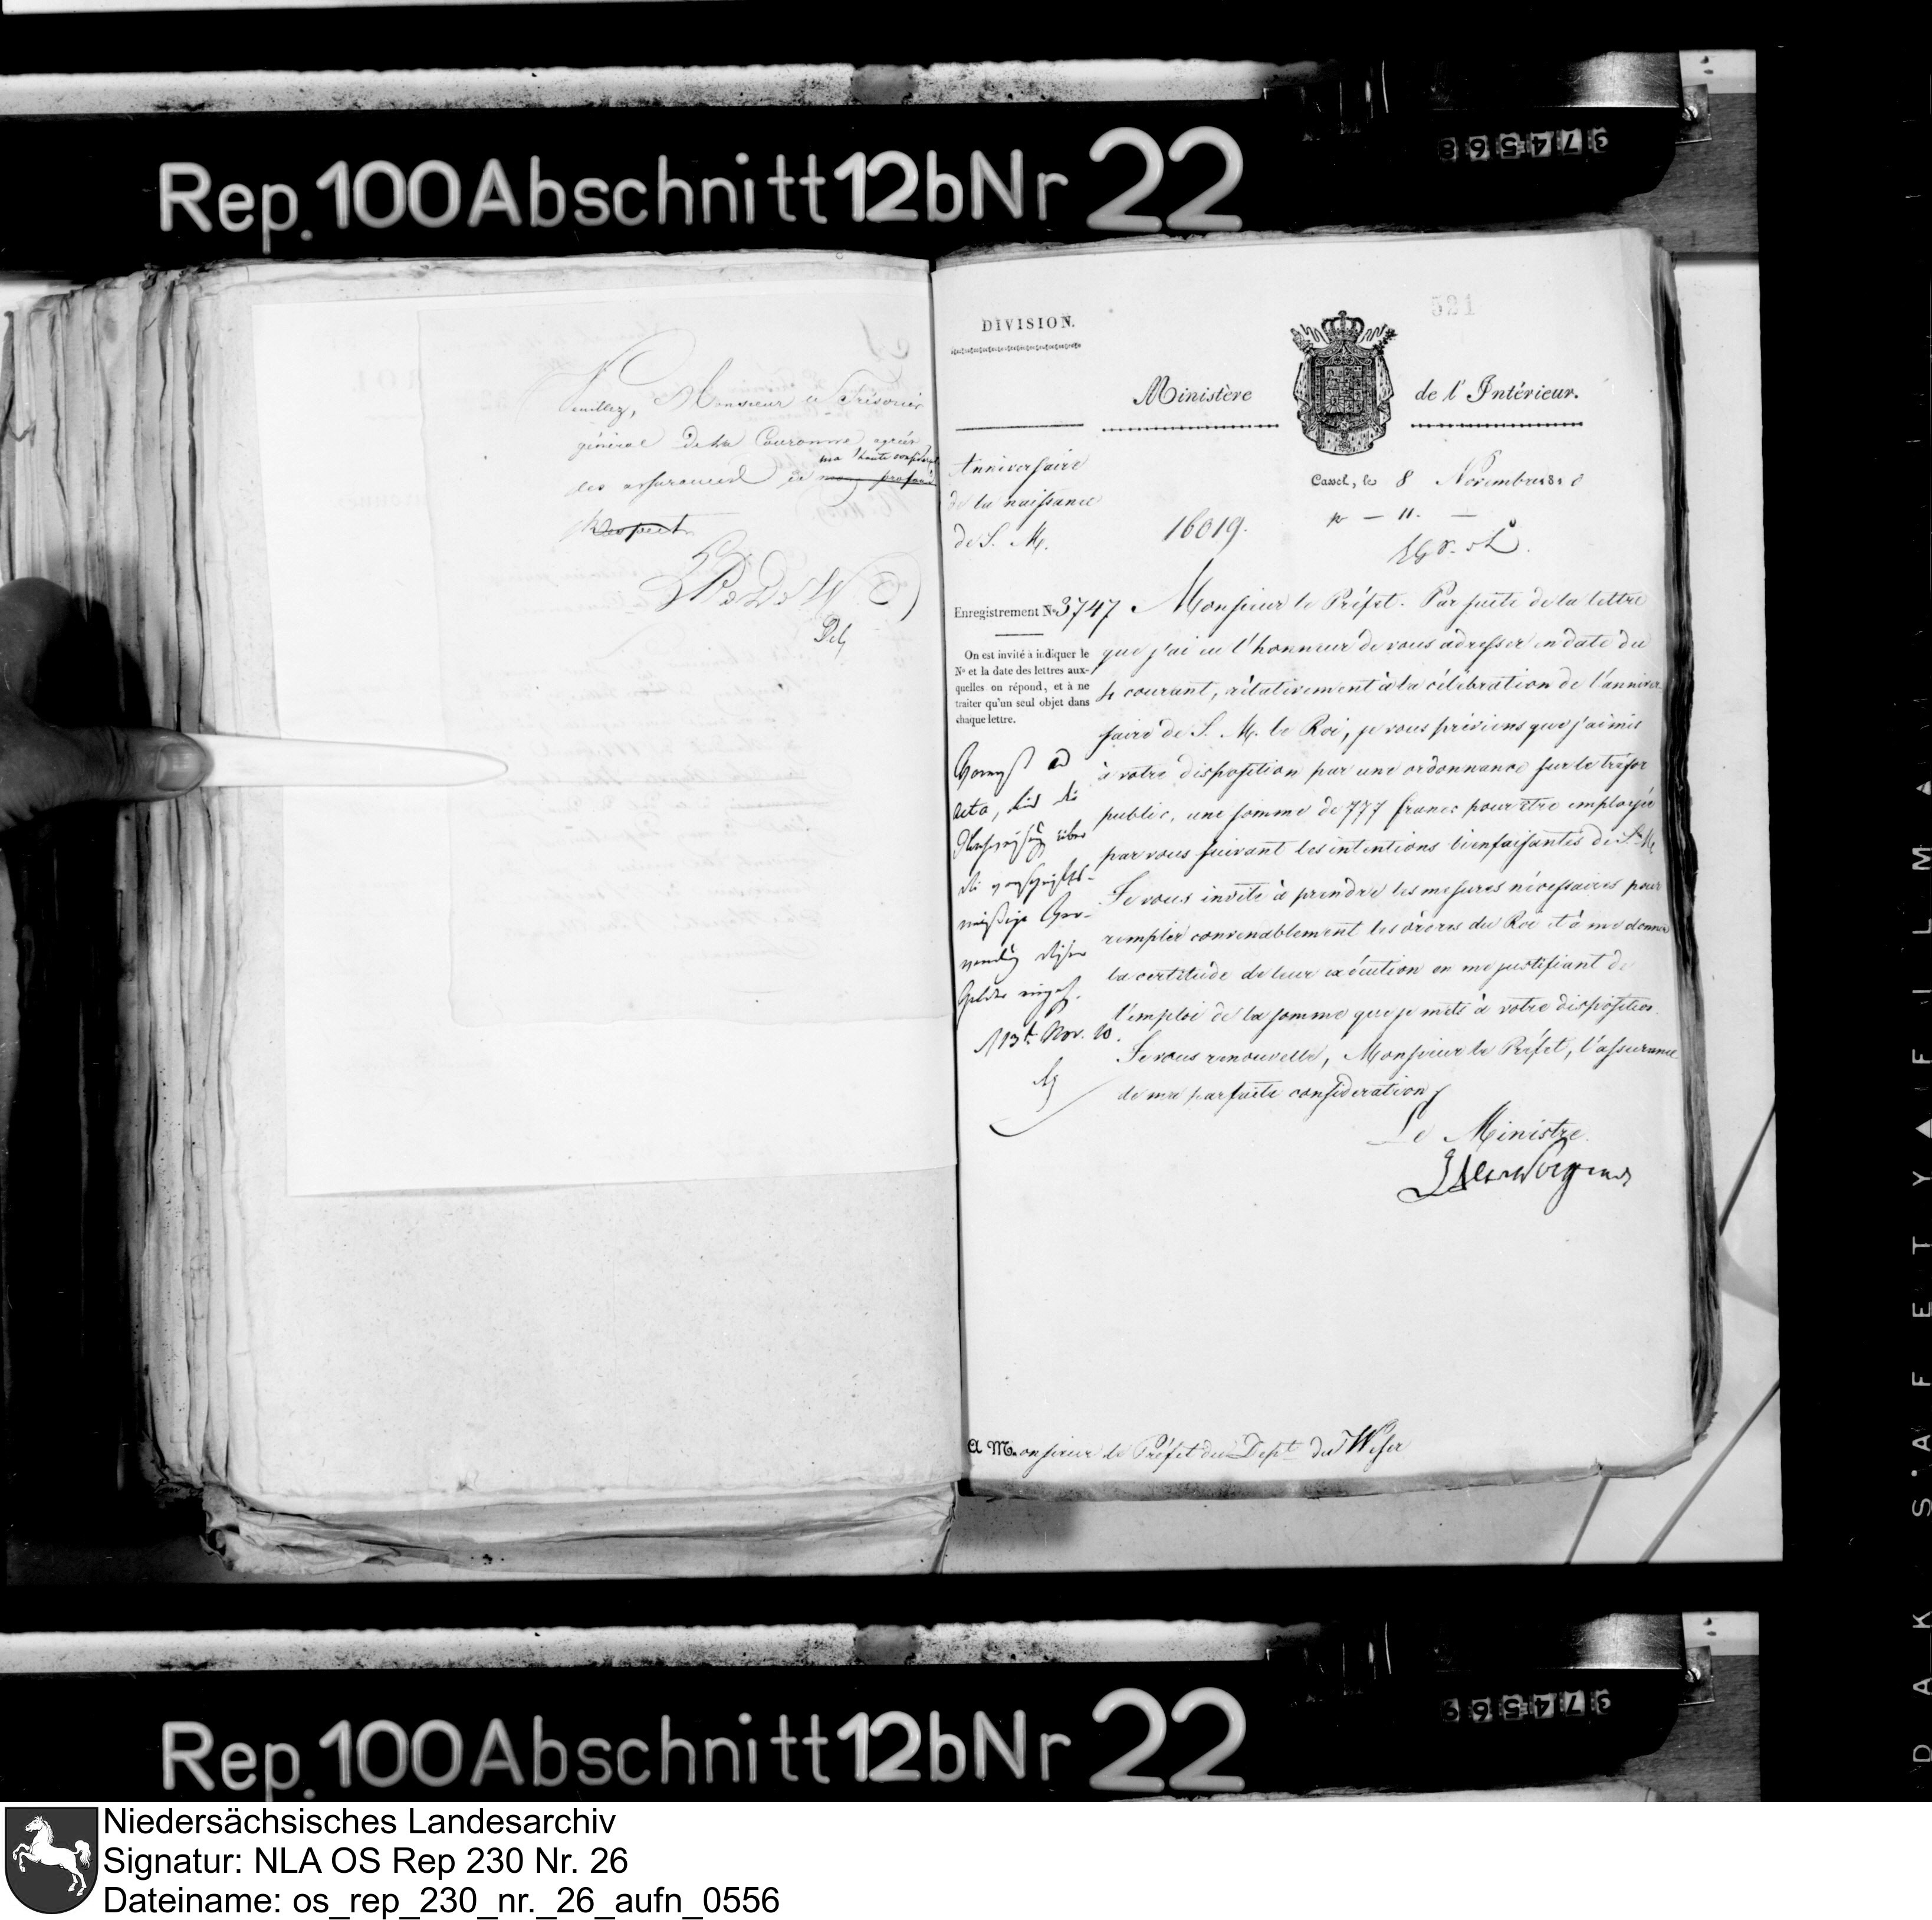 Rep. 100 Abschnitt 12b Nr 22
Veuillez, Monsieur le Trésorier
général de la Couronne, agréer
ma haute
les assurances de mon profond
Respect
DIVISION.
521
Ministère de l'Intérieur.
Anniversaire
de la naissance
de S. M.
Cassel, le 8 Novembre 1810
pr — 11. —
16019.
Enregistrement No 3747
On est invité à indiquer le
No et la date des lettres aux-
quelles on répond, et à ne
traiter qu'un seul objet dans
chaque lettre.
Monsieur le Préfet. Par suite de la lettre
que j'ai eu l'honneur de vous adresser en date du
4 courant, rélativement à la célébration de l'anniver
saire de S. M. le Roi, je vous préviens que j'ai mis
à votre disposition par une ordonnance sur le trésor
public, une somme de 777 francs pour être employée
par vous suivant les intentions bienfaisantes de S. M.
Je vous invite à prendre les mesures nécessaires pour
remplir convenablement les ordres du Roi et à me donner
la certitude de leur exécution en me justifiant de
l'emploi de la somme que je mets à votre disposition.
Je vous renouvelle, Monsieur le Préfet, l'assurance
de ma parfaite considération
Le Ministre.
acta, bis die
über
die vorschrifts-
mäßige Ver-
wendung dieser
Gelder
13t Nov. 10.
A Monsieur le Préfet du Dept du Weser
Rep. 100 Abschnitt 12b Nr 22
Niedersächsisches Landesarchiv
Signatur: NLA OS Rep 230 Nr. 26
Dateiname: os_rep_230_nr._26_aufn_0556